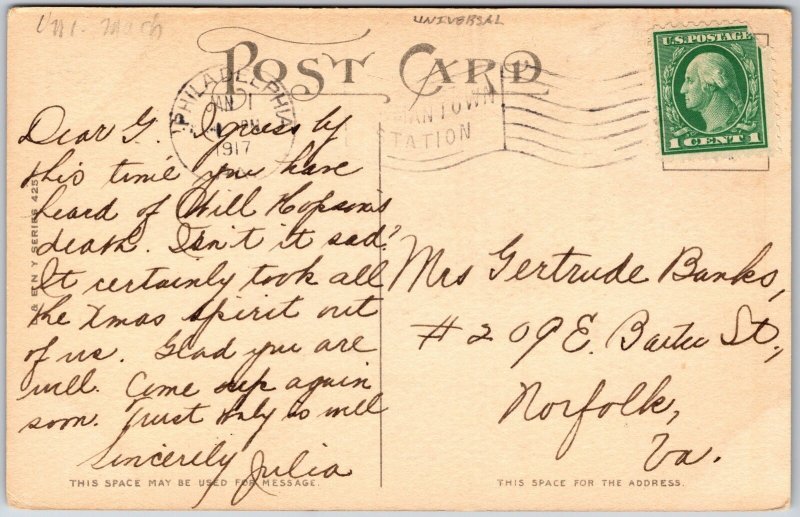 UNIVERSAL
POST CARD
U.S. POSTAGE
1 CENT 1
PHILADELPHIA
JAN 1
1917
STATION
Dear G. I guess by
this time you have
heard of Will Hopson's
death. Isn't it sad?
It certainly took all
the Xmas spirit out
of us. Glad you are
well. Come up again
soon. Trust is well
Sincerely Julia
Mrs Gertrude Banks,
#209 E. St.,
Norfolk,
Va.
SERIES 425
THIS SPACE MAY BE USED FOR MESSAGE.
THIS SPACE FOR THE ADDRESS.